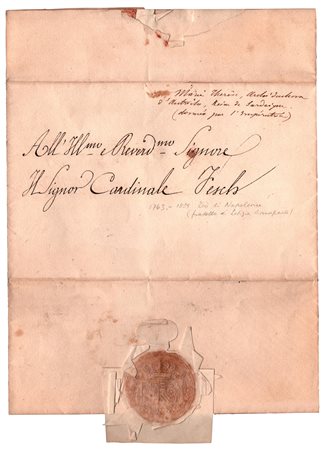 Marie Therese, Archiduchesse
d'Autriche, Reine de Sardaigne
(donné par l'Impératrice)
All'Ill.mo e Reverd.mo Signore
Il Signor Cardinale Fesch
1763 - 1839 Zio di Napoleone
(fratello di Letizia Bonaparte)